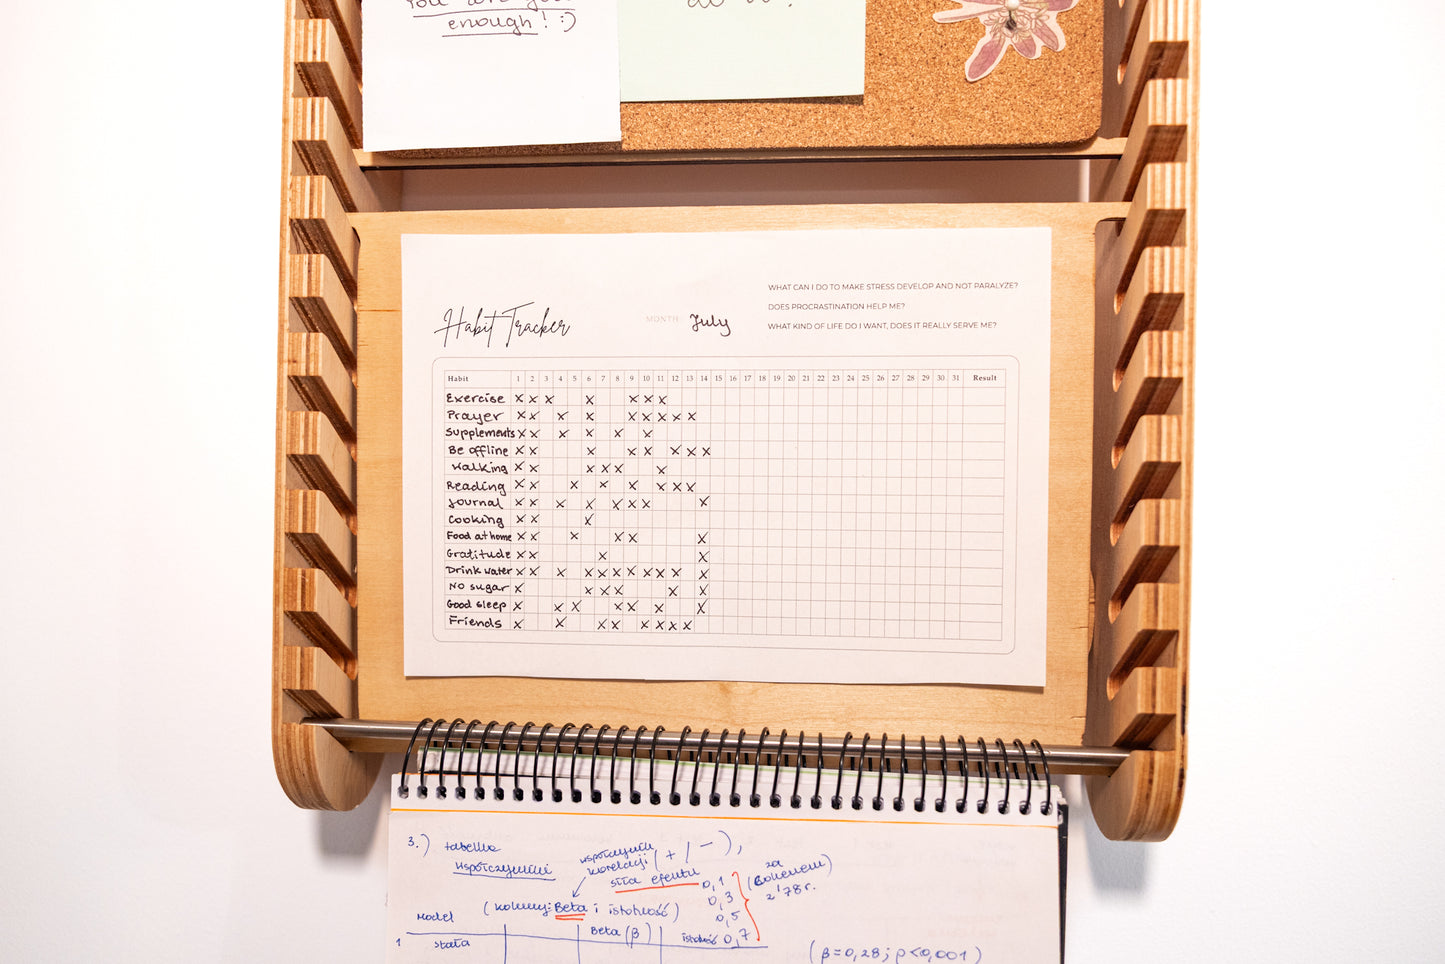 enough! :)
WHAT CAN I DO TO MAKE STRESS DEVELOP AND NOT PARALYZE?
DOES PROCRASTINATION HELP ME?
WHAT KIND OF LIFE DO I WANT, DOES IT REALLY SERVE ME?
Habit Tracker
MONTH: July
Habit 1 2 3 4 5 6 7 8 9 10 11 12 13 14 15 16 17 18 19 20 21 22 23 24 25 26 27 28 29 30 31 Result
Exercise X X X X X X X
Prayer X X X X X X X X X
Supplements X X X X X X
Be offline X X X X X X X X
Walking X X X X X X
Reading X X X X X X X X
Journal X X X X X X X X
Cooking X X X
Food at home X X X X X X
Gratitude X X X X
Drink water X X X X X X X X X X X
No sugar X X X X X X
Good sleep X X X X X X X
Friends X X X X X X X X
3.) tabelka
współczynniki
współczynnik
korelacji (+/-),
siła efektu
0,1
0,3
0,5
0,7
(za Cohenem)
(kolumny: Beta i istotność)
Model
Beta (β)
istotność
1 stała
(β=0,28; p<0,001)